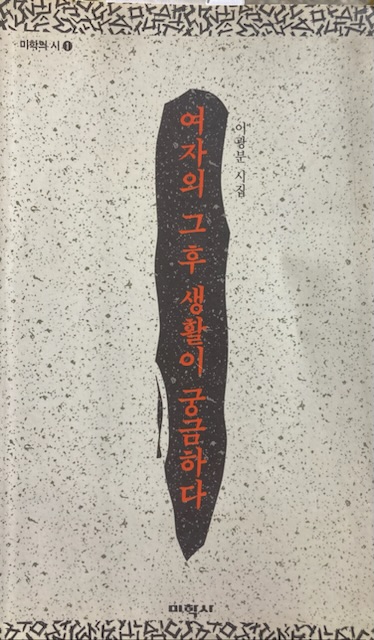 미학의 시 1
이광분 시집
여자의 그후 생활이 궁금하다
미학사